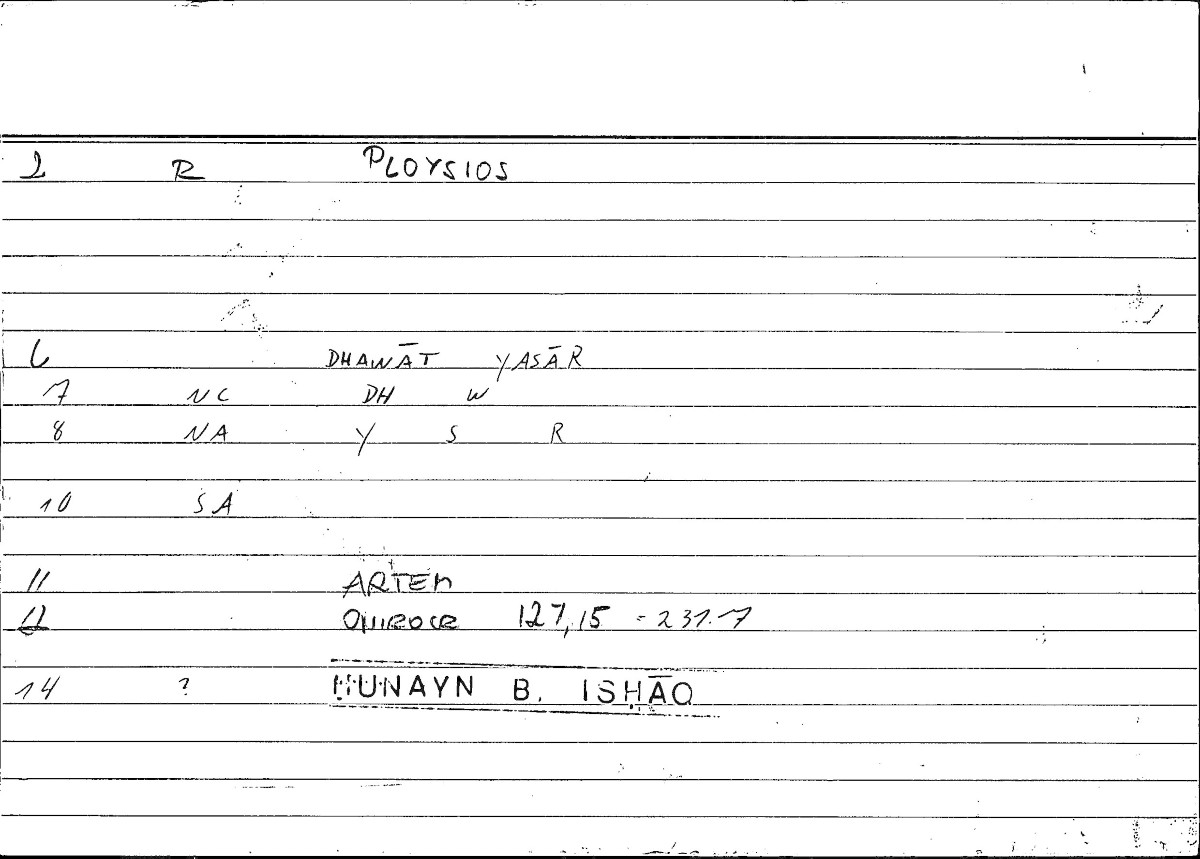 2 R PLOYSIOS
6 DHAWĀT YASĀR
7 NC DH W
8 NA Y S R
10 SA
11 ARTEM
12 ONIROCR 127,15 = 231.7
14 ? ḤUNAYN B. ISḤĀQ